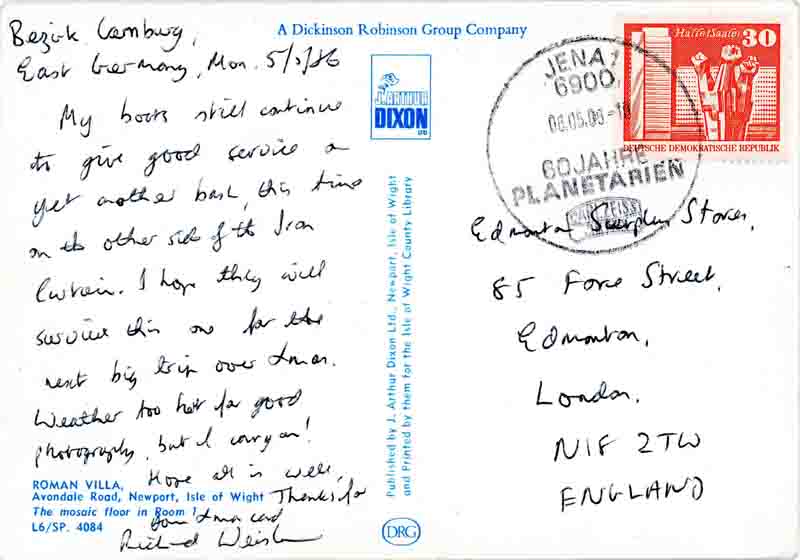 A Dickinson Robinson Group Company
Bezirk Camburg,
East Germany, Mon. 5/5/86
My boots still continue
to give good service on
yet another bash, this time
on the other side of the Iron
Curtain. I hope they will
survive this one for the
next big trip over Xmas.
Weather too hot for good
photography, but I carry on!
Hope all is well,
Thanks for
your Xmas card
Richard
ROMAN VILLA,
Avondale Road, Newport, Isle of Wight
The mosaic floor in Room 1
L6/SP. 4084
J. ARTHUR
DIXON
LTD
Published by J. Arthur Dixon Ltd., Newport, Isle of Wight
and Printed by them for the Isle of Wight County Library
DRG
JENA 1
6900
06.05.86-18
60 JAHRE
PLANETARIEN
CARL ZEISS
Halle/Saale
30
DEUTSCHE DEMOKRATISCHE REPUBLIK
Edmonton Surplus Stores,
85 Fore Street,
Edmonton,
London.
N18 2TW
ENGLAND